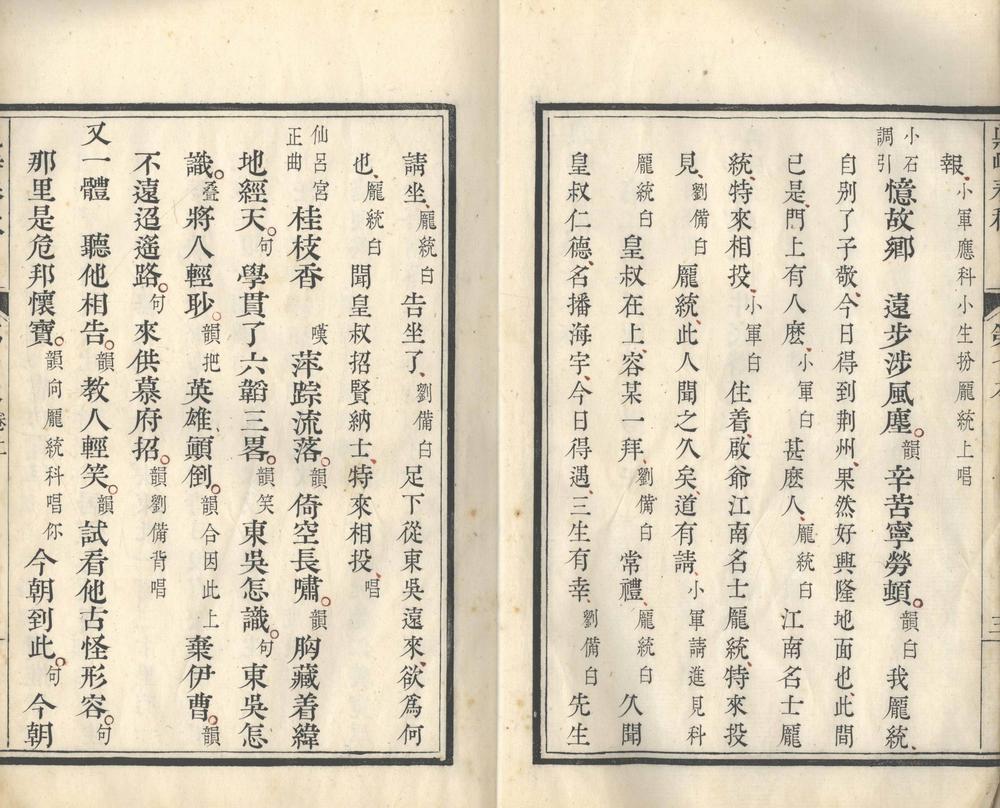 報小軍應科小生扮龐統上唱
小石調引憶故鄉　遠步涉風塵韻辛苦寧勞頓韻白我龐統
自別了子敬今日得到荆州果然好興隆地面也此間
已是門上有人麽小軍白甚麽人龐統白江南名士龐
統特來相投小軍白住着啟爺江南名士龐統特來投
見劉備白龐統此人聞之久矣道有請小軍請進見科
龐統白皇叔在上容某一拜劉備白常禮龐統白久聞
皇叔仁德名播海宇今日得遇三生有幸劉備白先生
請坐龐統白告坐了劉備白足下從東吳遠來欲爲何
也龐統白聞皇叔招賢納士特來相投唱
仙呂宮正曲桂枝香　嘆萍踪流落韻倚空長嘯韻胸藏着緯
地經天句學貫了六韜三畧韻笑東吳怎識句東吳怎
識叠將人輕眇韻把英雄顚倒韻合因此上棄伊曹韻
不遠迢遥路句來供慕府招韻劉備背唱
又一體　聽他相告韻教人輕笑韻試看他古怪形容句
那里是危邦懷寶韻向龐統科唱你今朝到此句今朝